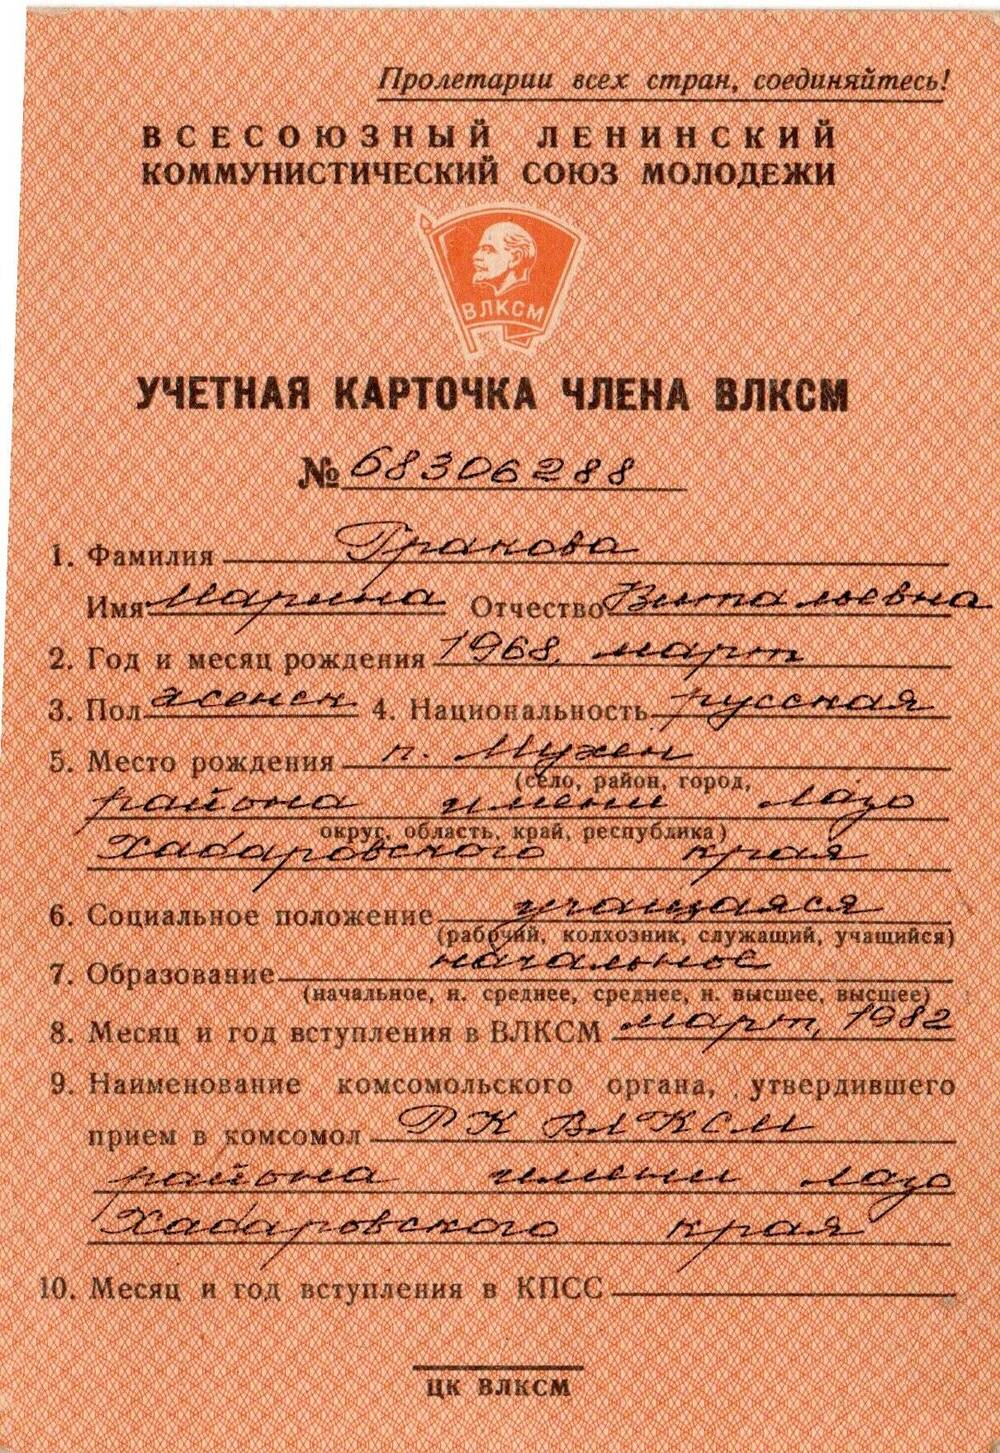 Пролетарии всех стран, соединяйтесь!
ВСЕСОЮЗНЫЙ ЛЕНИНСКИЙ
КОММУНИСТИЧЕСКИЙ СОЮЗ МОЛОДЕЖИ
ВЛКСМ
УЧЕТНАЯ КАРТОЧКА ЧЛЕНА ВЛКСМ
№ 68306288
1. Фамилия Гракова
Имя Марина Отчество Витальевна
2. Год и месяц рождения 1968, март
3. Пол женск 4. Национальность русская
5. Место рождения п. Мухен
(село, район, город,
района имени Лазо
округ, область, край, республика)
Хабаровского края
6. Социальное положение учащаяся
(рабочий, колхозник, служащий, учащийся)
7. Образование начальное
(начальное, н. среднее, среднее, н. высшее, высшее)
8. Месяц и год вступления в ВЛКСМ март, 1982
9. Наименование комсомольского органа, утвердившего
прием в комсомол РК ВЛКСМ
района имени Лазо
Хабаровского края
10. Месяц и год вступления в КПСС
ЦК ВЛКСМ